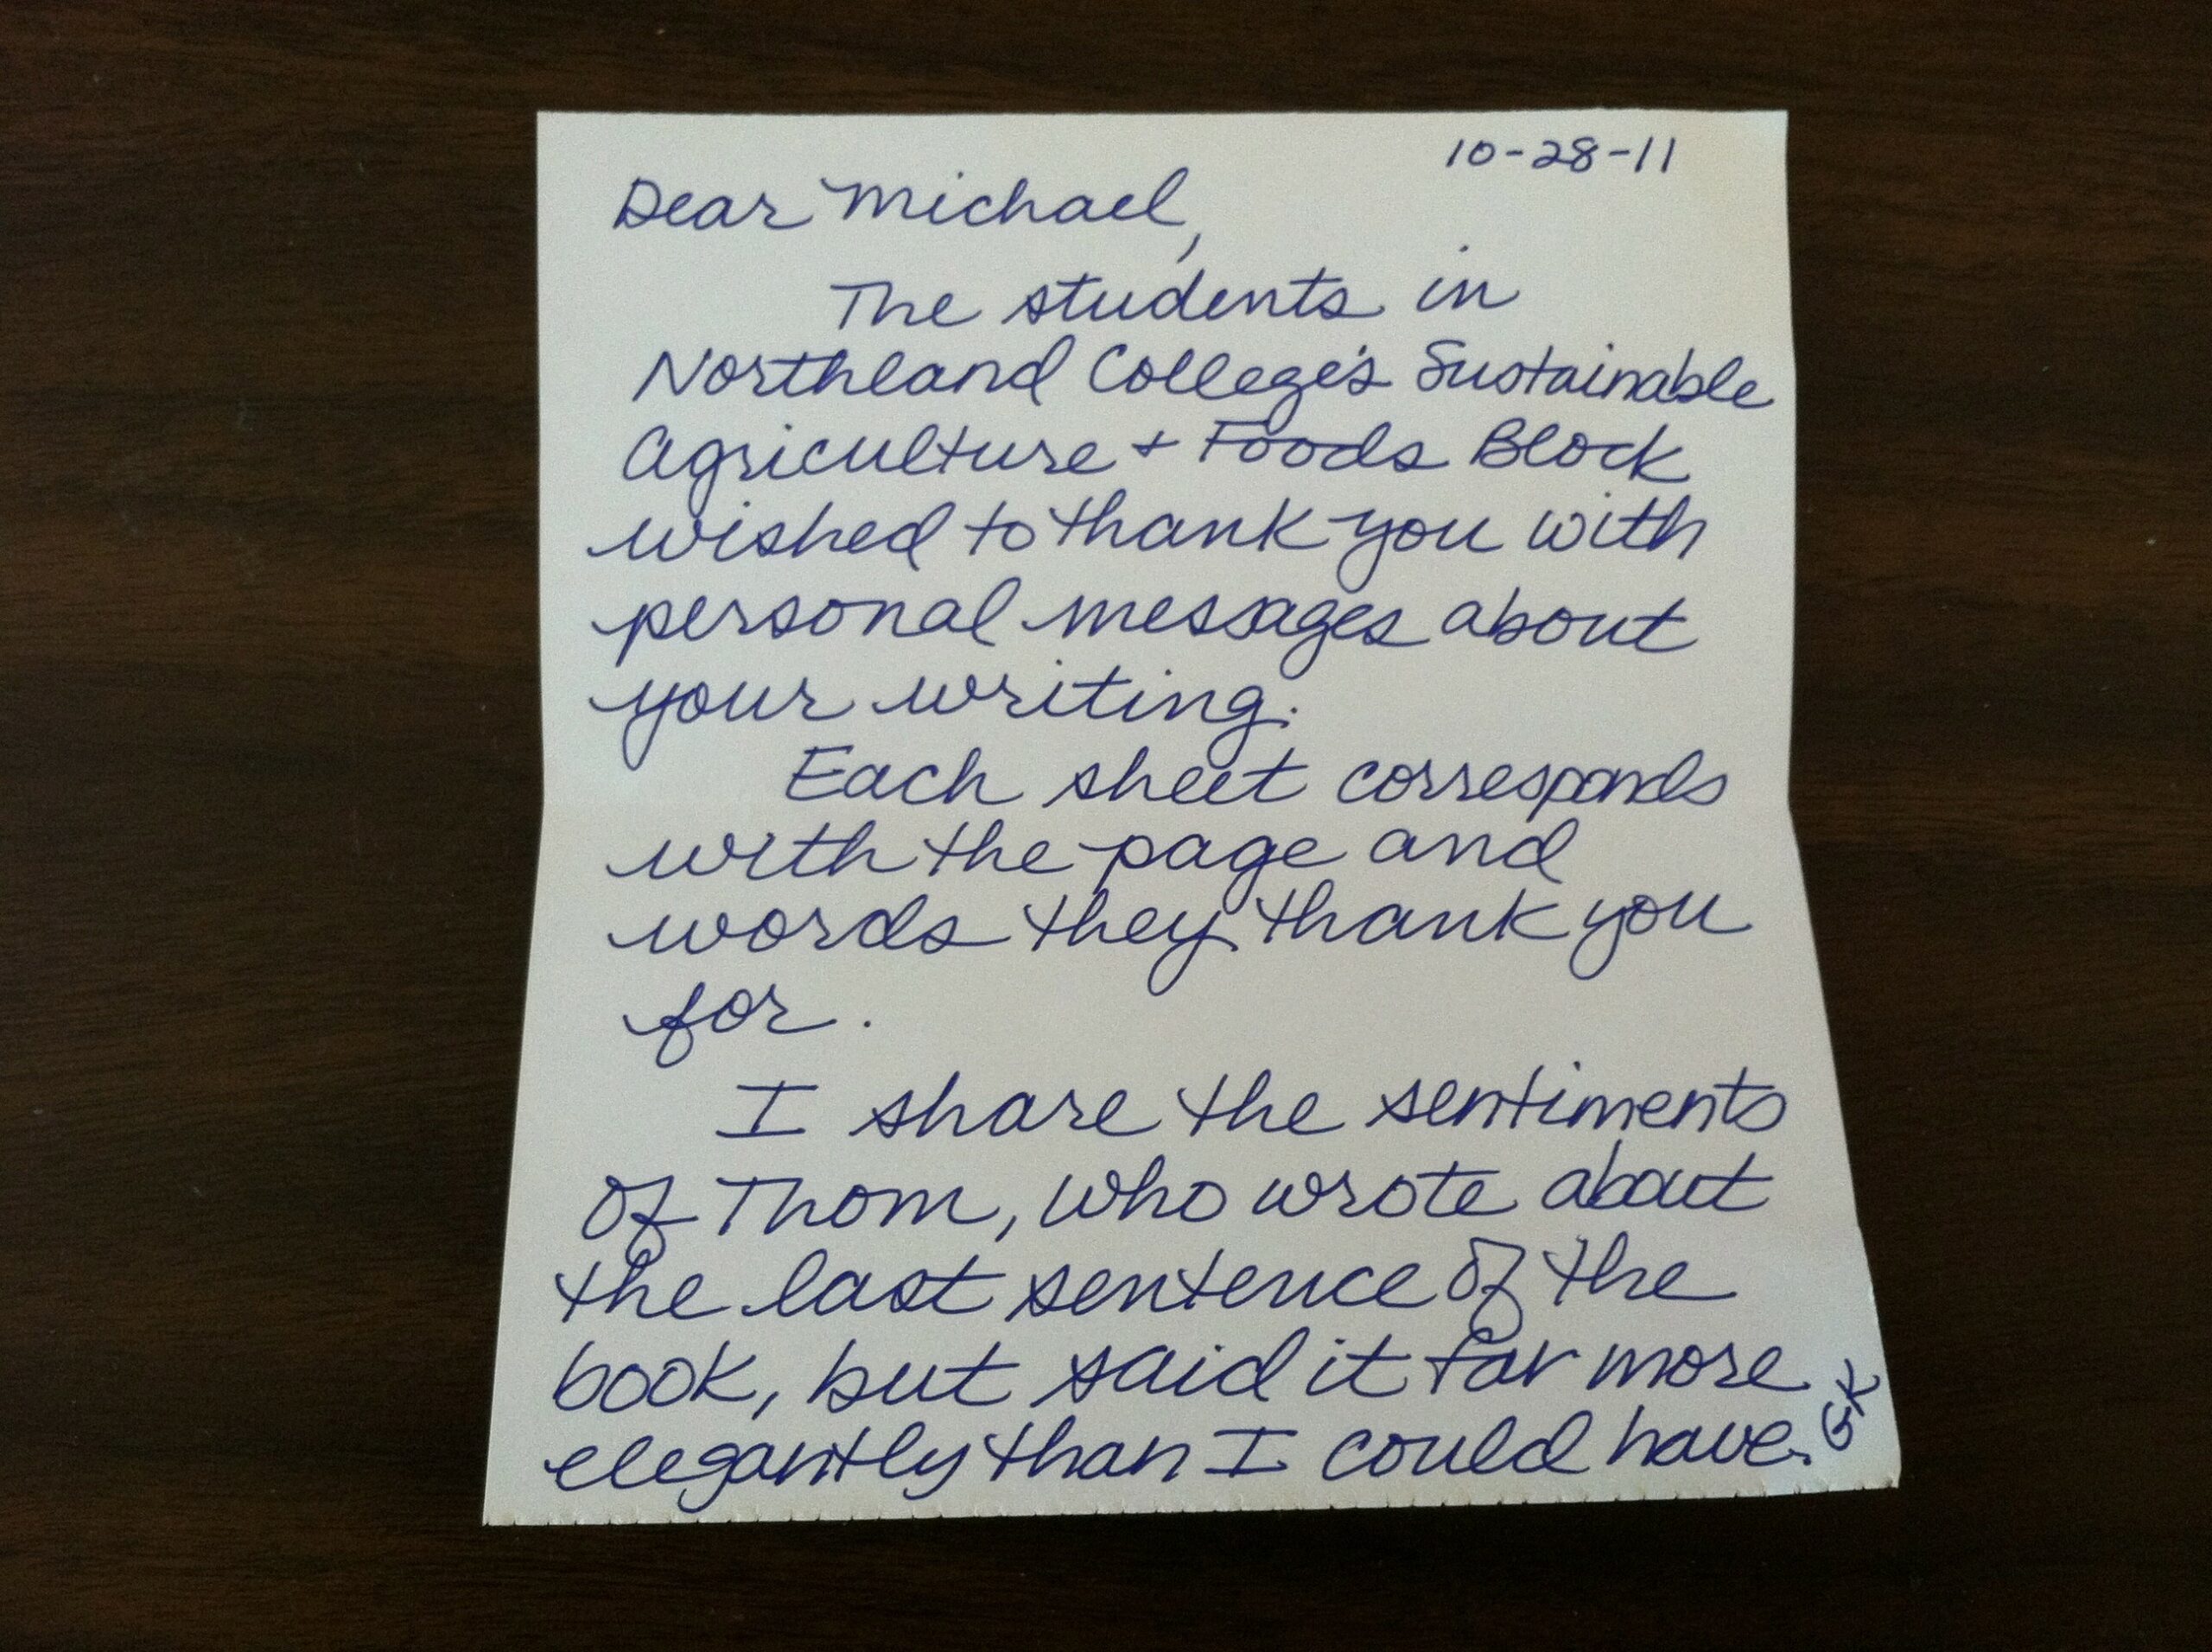 10-28-11
Dear Michael,
The students in
Northland College's Sustainable
Agriculture + Foods Block
wished to thank you with
personal messages about
your writing.
Each sheet corresponds
with the page and
words they thank you
for.
I share the sentiments
of Thom, who wrote about
the last sentence of the
book, but said it far more
elegantly than I could have.
GK